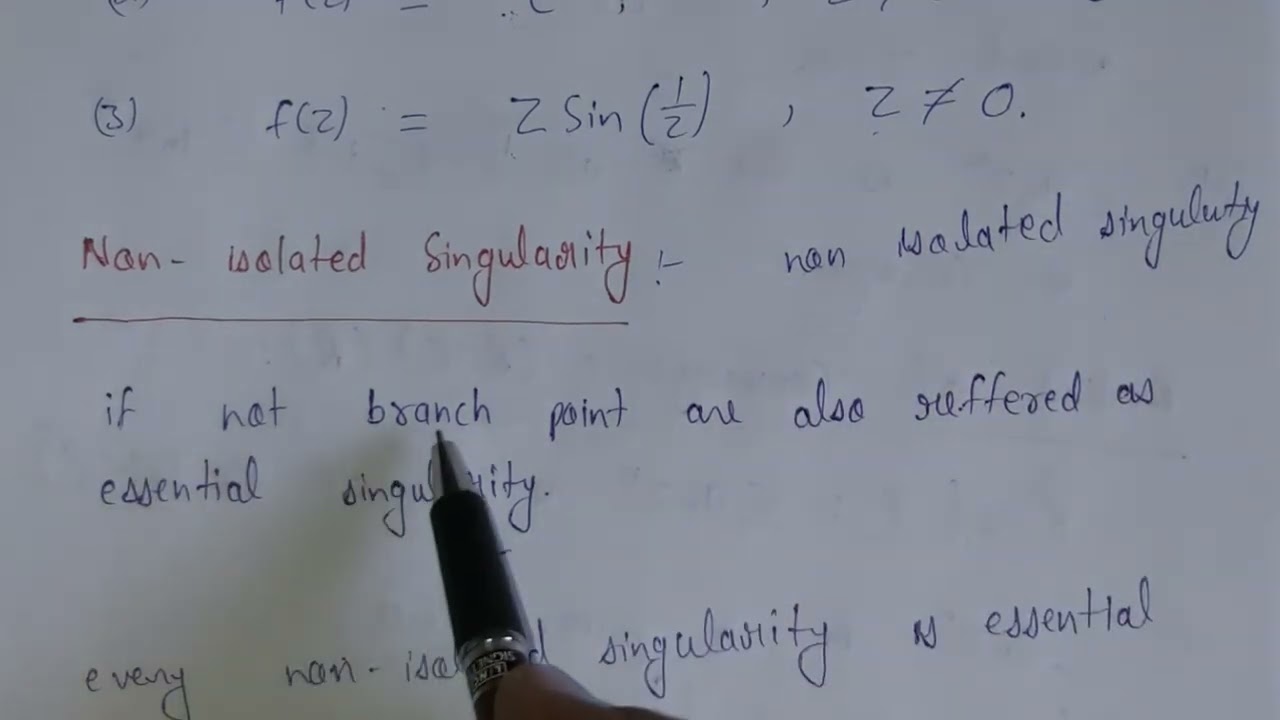 (3) f(z) = z Sin(1/z) , z ≠ 0.
Non-isolated Singularity :- non isolated singuluty
if not branch point are also reffered as
essential singularity.
every non-isolated singularity is essential